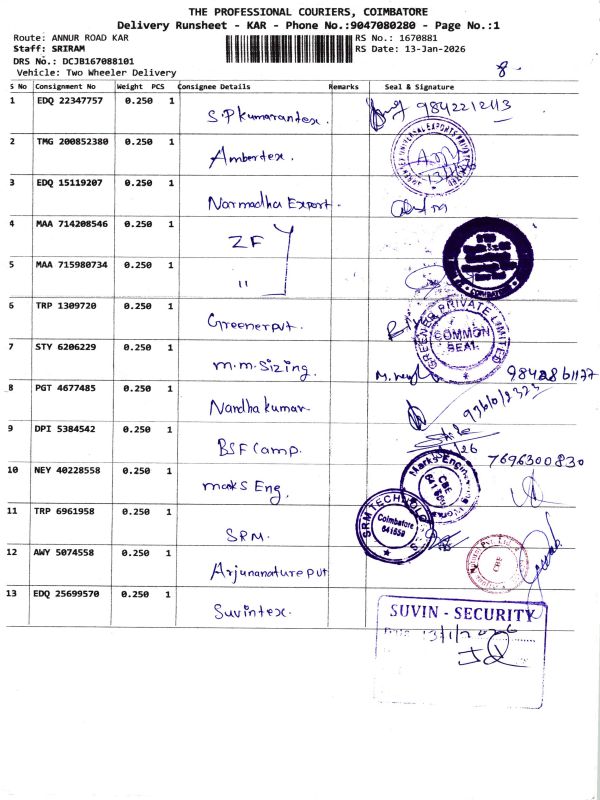 THE PROFESSIONAL COURIERS, COIMBATORE
Delivery Runsheet - KAR - Phone No.:9047080280 - Page No.:1
Route: ANNUR ROAD KAR
RS No.: 1670881
Staff: SRIRAM
RS Date: 13-Jan-2026
DRS No.: DCJB167088101
Vehicle: Two Wheeler Delivery
S No Consignment No Weight PCS Consignee Details Remarks Seal & Signature
1 EDQ 22347757 0.250 1 S.P kumarantex. 9842212113
2 TMG 200852380 0.250 1 Ambertex.
3 EDQ 15119207 0.250 1 Narmadha Export.
4 MAA 714208546 0.250 1 ZF
5 MAA 715980734 0.250 1 "
6 TRP 1309720 0.250 1 Greenerpvt. GREENER PRIVATE LIMITED COMMON SEAL
7 STY 6206229 0.250 1 m.m.Sizing.
8 PGT 4677485 0.250 1 Nandhakumar
9 DPI 5384542 0.250 1 BSF Camp. 7696300830
10 NEY 40228558 0.250 1 marks Eng.
11 TRP 6961958 0.250 1 SRM. Coimbatore 641659
12 AWY 5074558 0.250 1 Arjunanature pvt
13 EDQ 25699570 0.250 1 Suvintex.
SUVIN - SECURITY
13/1/2026